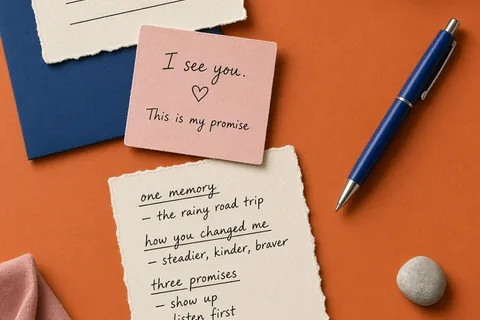 I see you.
♡
This is my promise
one memory
– the rainy road trip
how you changed me
– steadier, kinder, braver
three promises
– show up
listen first